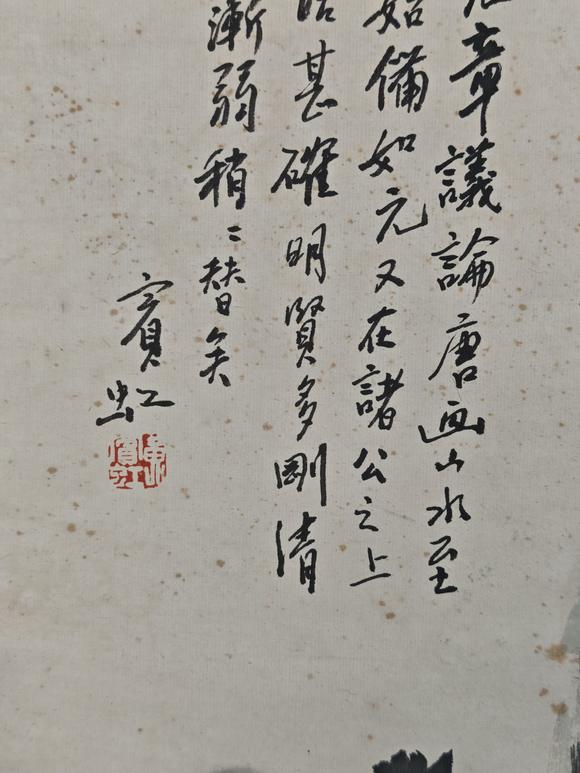 章議論唐画山水至
始備如元又在諸公之上
甚確明賢多剛清
漸弱稍〻替矣
賓虹
黃賓虹